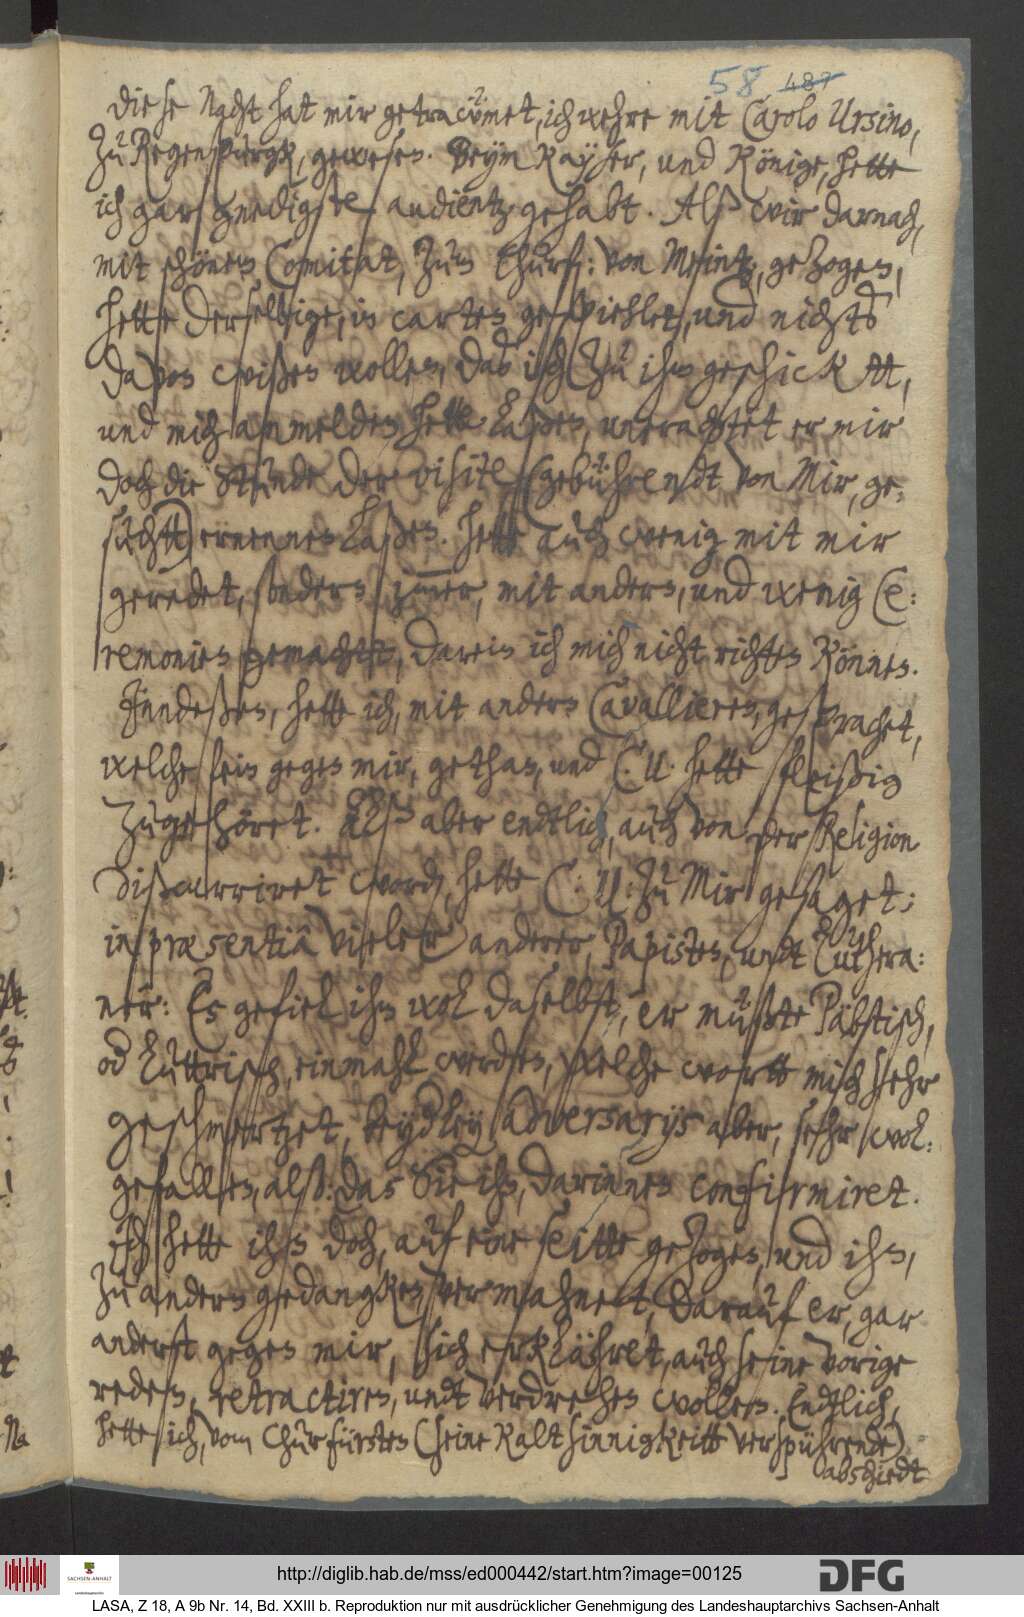 58 487
Diese Nacht hat mir getraümet, ich wehre mit Carolo Ursino,
zu Regenspurgk, gewesen. Beym Kayser, und Könige, hette
ich gar gnedigste audientz gehabt. Alß wir darnach,
mit schönem Comitat, zum Churf: von Meintz, gezogen,
hette derselbige, in carten gespiehlet, und nichts
davon wißen wollen, das ich zu ihm geschickt,
und mich anmelden hette laßen, unerachtet er mir
doch die Stunde der visite (gebührendt von Mir, ge-
sucht) ernennen laßen. hette auch wenig mit mir
geredet, sondern jmmer, mit andern, und wenig Ce:
remonien gemacht, darein ich mich nicht richten können.
Jnndeßen, hette ich, mit andern Cavallieren, gesprachet,
welche fein gegen mir, gethan, und C. U. hette fleißig
zugehöret. Alß aber endtlich, auch von der Religion
dißcurriret worden, hette C: U: zu Mir gesaget;
in præsentiâ vieler anderer, Papisten, undt Luthera:
ner: Es gefiel ihm wol daselbst, er müßte Päbstisch,
od Luttrisch, einmahl werden, welche wortt mich sehr
geschmertzet, beyderley adversarijs aber, sehr wol:
gefallen, alß: das Sie ihn, darinnen confirmiret.
Jch hette ihn doch, auf eine seitte gezogen, und ihn,
zu andern gedangken, vermahnet, darauf er, gar
anderst gegen mir, sich erklähret, auch seine vorige
reden, retractiren, undt verdrehen wollen. Endtlich,
hette ich, vom Churfürsten (seine Kaltsinnigkeitt verspührende)
abschiedt
http://diglib.hab.de/mss/ed000442/start.htm?image=00125
SACHSEN-ANHALT
DFG
LASA, Z 18, A 9b Nr. 14, Bd. XXIII b. Reproduktion nur mit ausdrücklicher Genehmigung des Landeshauptarchivs Sachsen-Anhalt